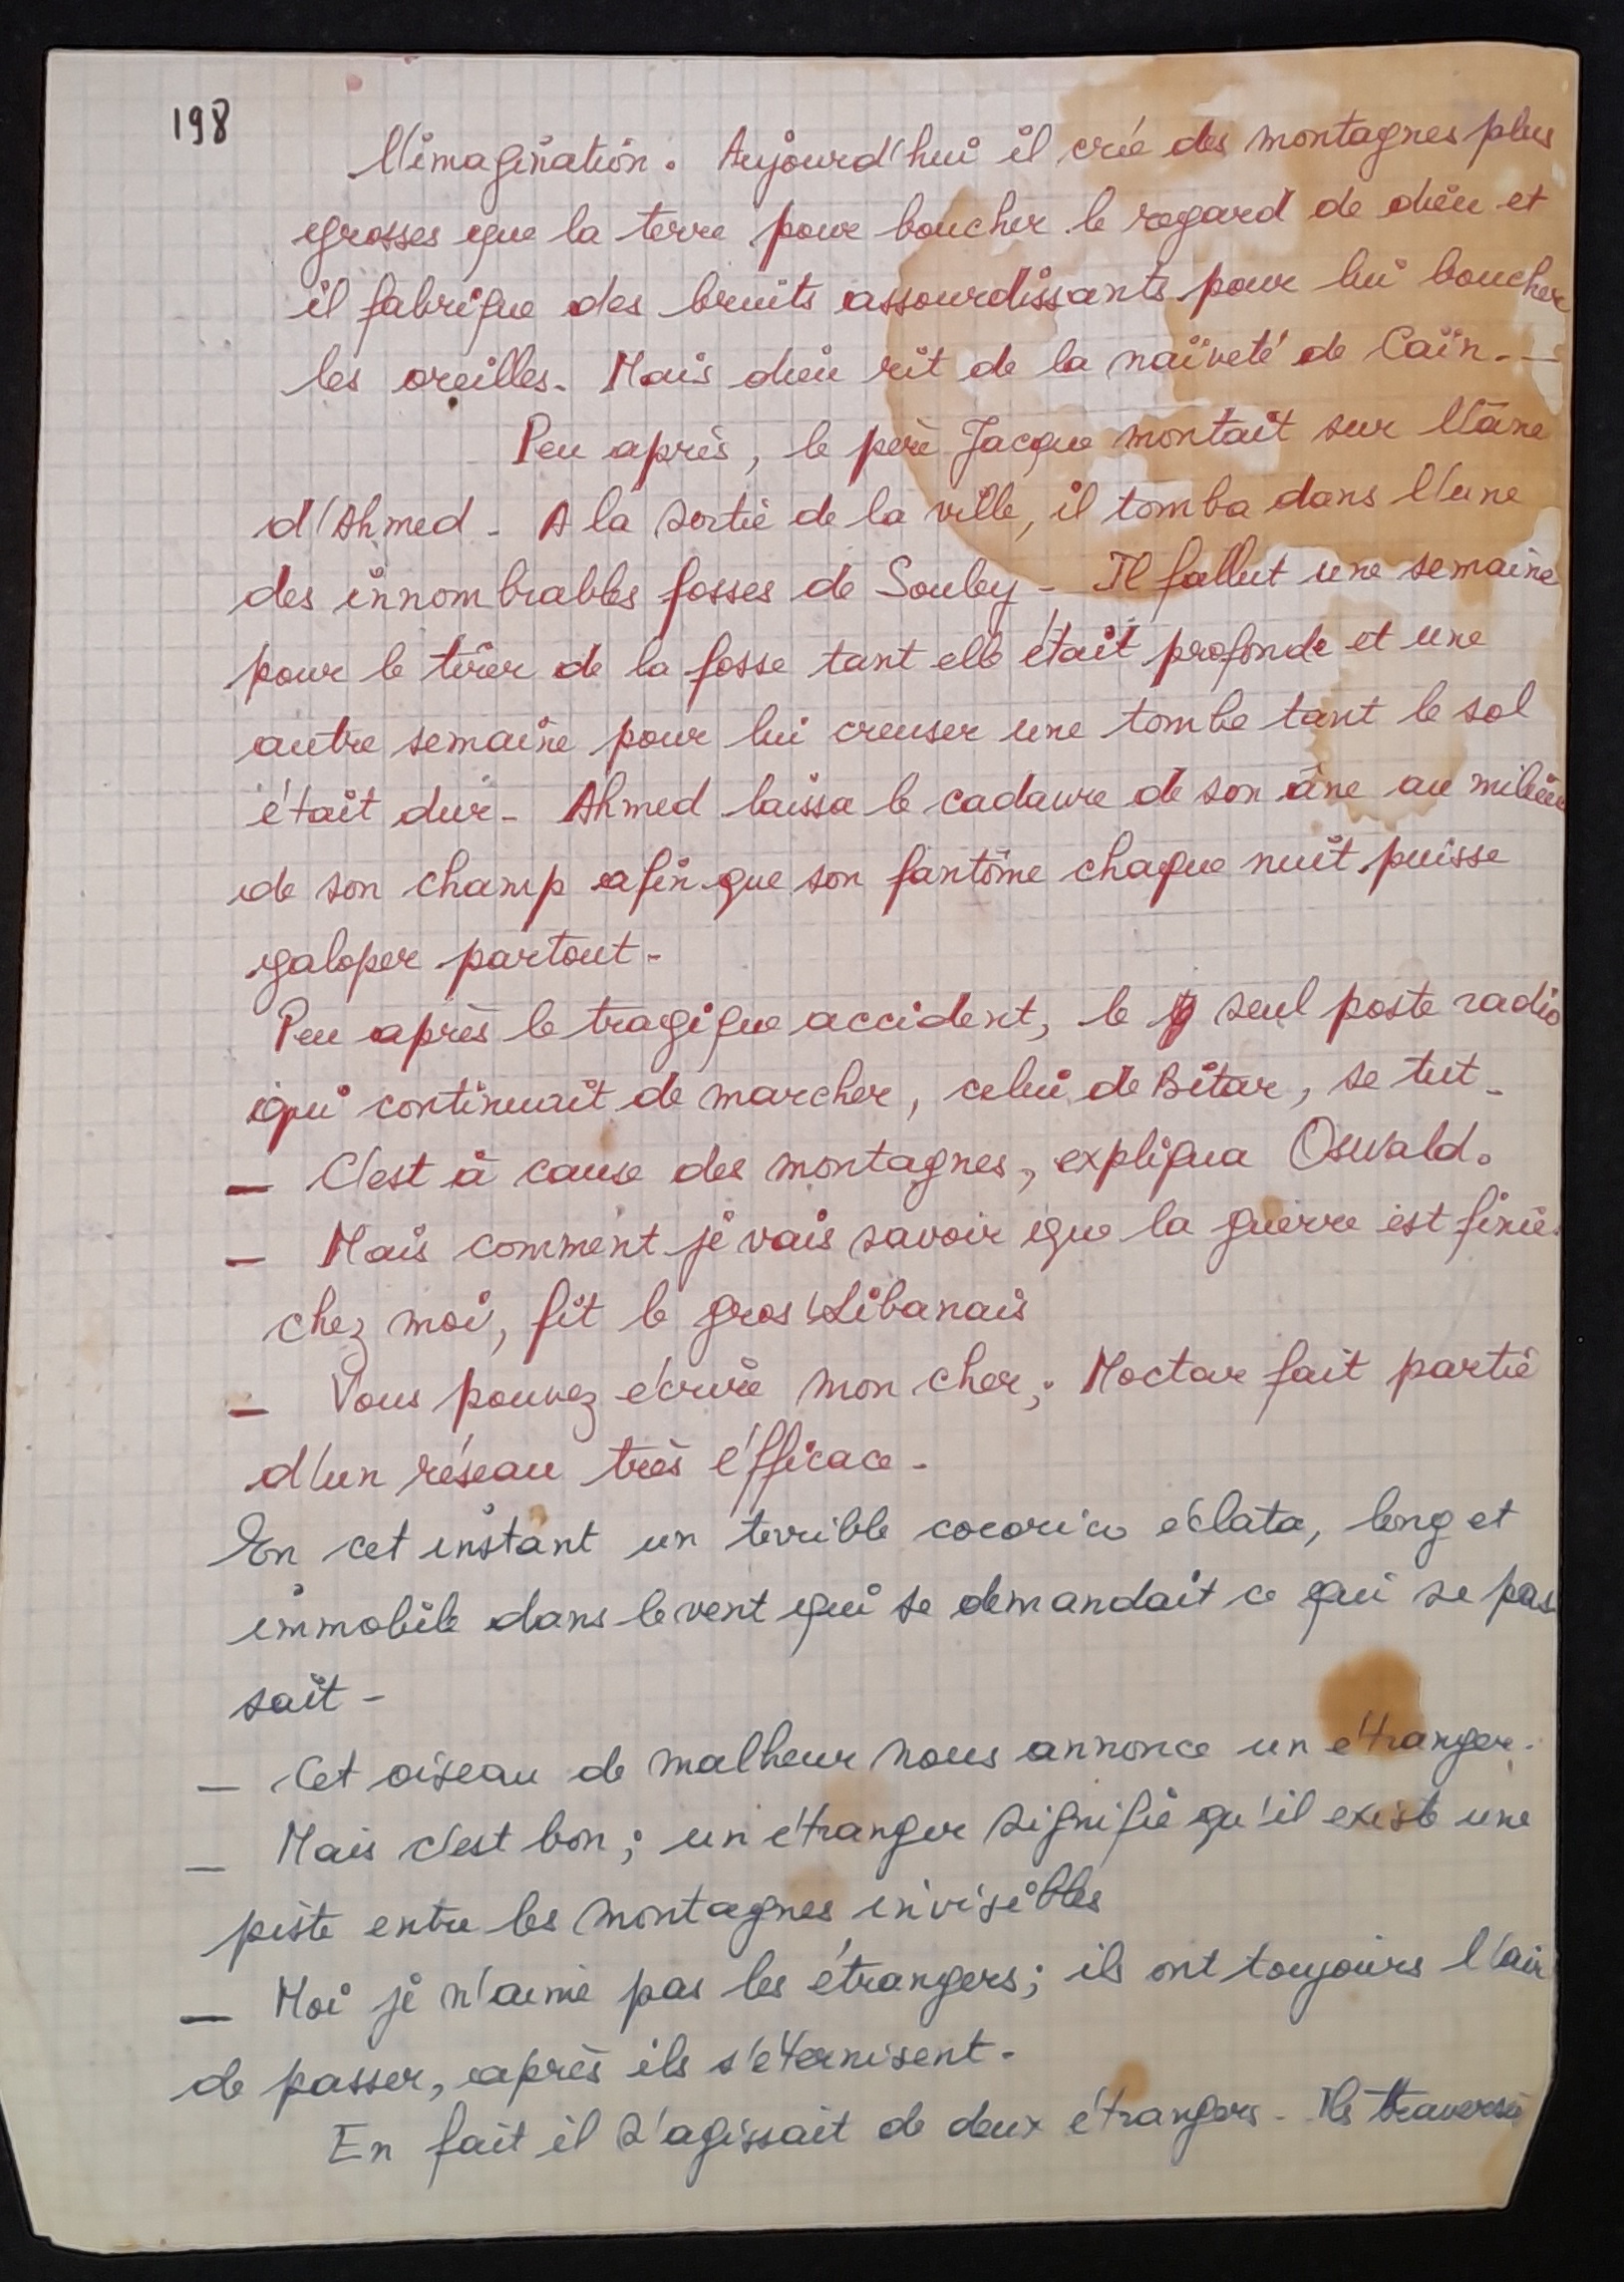 198
l'imagination. Aujourd'hui il crée des montagnes plus
grosses que la terre pour boucher le regard de dieu et
il fabrique des bruits assourdissants pour lui boucher
les oreilles. Mais dieu rit de la naïveté de Caïn. -
Peu après, le père Jacque montait sur l'âne
d'Ahmed - A la sortie de la ville, il tomba dans l'une
des innombrables fosses de Souley - Il fallut une semaine
pour le tirer de la fosse tant elle était profonde et une
autre semaine pour lui creuser une tombe tant le sol
était dur - Ahmed laissa le cadavre de son âne au milieu
de son champ afin que son fantôme chaque nuit puisse
galoper partout -
Peu après le tragique accident, le seul poste radio
qui continuait de marcher, celui de Bitar, se tut -
- C'est à cause des montagnes, expliqua Oswald.
- Mais comment je vais savoir que la guerre est finie
chez moi, fit le gros Libanais
- Vous pouvez écrire mon cher ; Moctar fait partie
d'un réseau très éfficace -
En cet instant un terrible cocorico éclata, long et
immobile dans le vent qui se demandait ce qui se pas
sait -
- Cet oiseau de malheur nous annonce un étranger.
- Mais c'est bon ; un étranger signifie qu'il existe une
piste entre les montagnes invisibles
- Moi je n'aime pas les étrangers ; ils ont toujours l'air
de passer, après ils s'éternisent -
En fait il s'agissait de deux étrangers - Ils